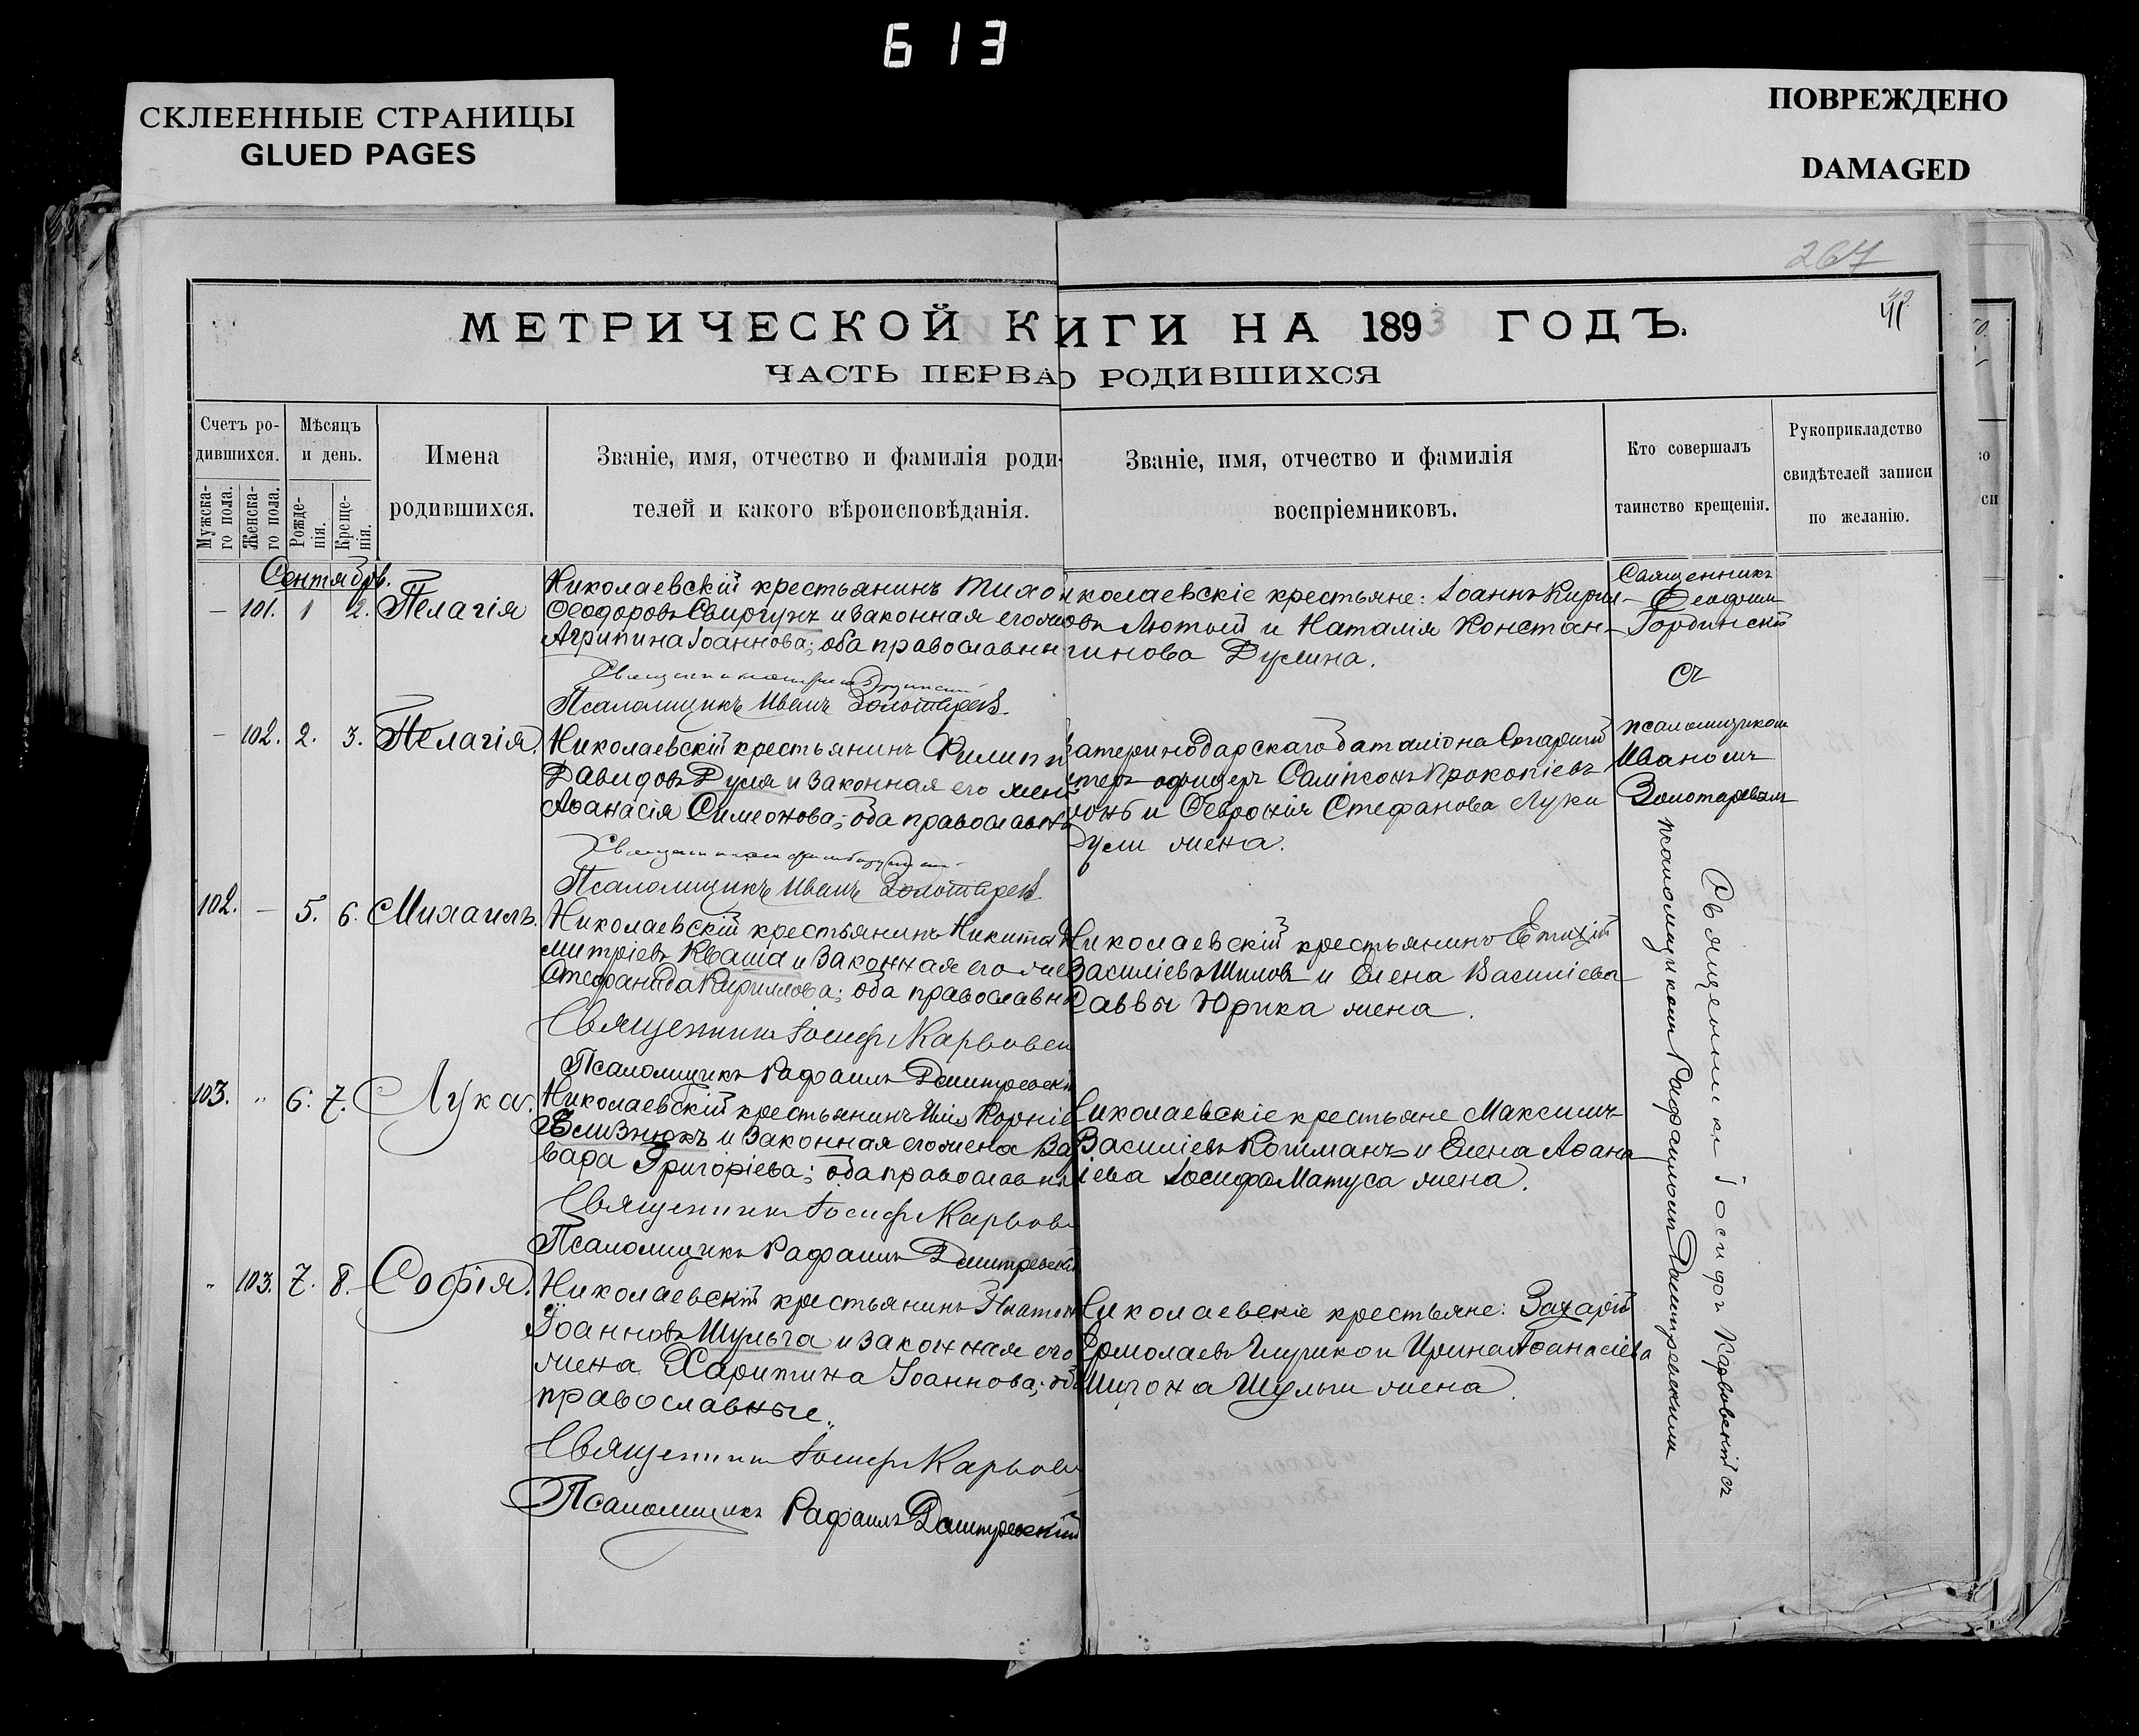 613
СКЛЕЕННЫЕ СТРАНИЦЫ
GLUED PAGES
ПОВРЕЖДЕНО
DAMAGED
267
МЕТРИЧЕСКОЙ К ИГИ НА 1893 ГОДЪ.
ЧАСТЬ ПЕРВА О РОДИВШИХСЯ
Счетъ ро-
дившихся.
Мужска-
го пола.
Женска-
го пола.
Мѣсяцъ
и день.
Рожде-
нія.
Креще-
нія.
Имена
родившихся.
Званіе, имя, отчество и фамилія роди-
телей и какого вѣроисповѣданія.
Званіе, имя, отчество и фамилія
воспріемниковъ.
Кто совершалъ
таинство крещенія.
Рукоприкладство
свидѣтелей записи
по желанію.
Сентябрь.
— 101. 1 2. Пелагія
Николаевскій крестьянинъ Тихо
Ѳеодоровъ Свиргунъ и законная его
Агрипина Іоаннова; оба православны
Псаломщикъ Иванъ Золотаревъ
иколаевскіе крестьяне: Іоаннъ Кирил-
овъ Лютый и Наталія Констан-
тинова Дусина.
Священникъ
Горбинскій
съ
псаломщикомъ
Иваномъ
Золотаревымъ
— 102. 2. 3. Пелагія.
Николаевскій крестьянинъ Филипп
Давидовъ Дуля и законная его жен
Аѳанасія Симеонова; оба православны
Псаломщикъ Иванъ Золотаревъ
катеринодарскаго баталіона Старшій
офицеръ Сампсонъ Прокопіевъ
и Февронія Стефанова Луки
Дули жена.
102. — 5. 6. Михаилъ.
Николаевскій крестьянинъ Никита Д
митріевъ Кваша и законная его же
Стефанида Кириллова; оба православны
Священникъ Іосифъ Карвовск
Псаломщикъ Рафаилъ Дмитревскі
Николаевскій крестьянинъ Евтихій
Василіевъ Шиловъ и Елена Василіева
Саввы Юрика жена.
103. " 6. 7. Лука.
Николаевскій крестьянинъ Илія Корніе
Близнюкъ и законная его жена Ва
вара Григоріева; оба православны
Священникъ Іосифъ Карвов
Псаломщикъ Рафаилъ Дмитревскій
Николаевскіе крестьяне Максимъ
Василіевъ Котманъ и Елена Аѳана
іева Іосифа Матуса жена.
" 103. 7. 8. Софія.
Николаевскій крестьянинъ Платон
Іоанновъ Шульга и законная его
жена Харитина Іоаннова; об
православные.
Священникъ Іосифъ Карвов
Псаломщикъ Рафаилъ Дмитревскій
Николаевскіе крестьяне: Захарій
Ермолаевъ и Ирина Аѳанасіева
Шульги жена.
Священникъ Іосифъ Карвовскій съ
псаломщикомъ Рафаиломъ Дмитревскимъ